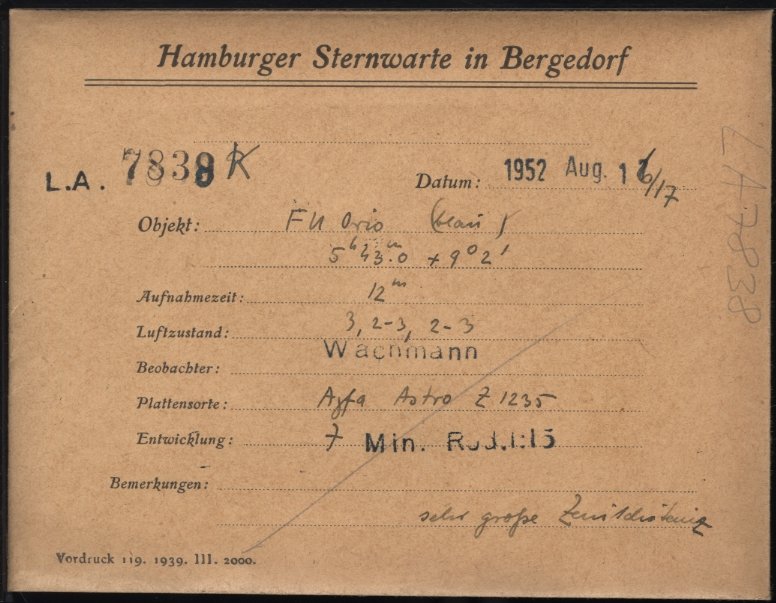 Hamburger Sternwarte in Bergedorf
L.A. 7838 K
Datum: 1952 Aug. 16/17
Objekt: FU Orio (blau)
5h 43m.0 + 9° 2'
Aufnahmezeit: 12m
Luftzustand: 3, 2-3, 2-3
Beobachter: Wachmann
Plattensorte: Agfa Astro Z 1235
Entwicklung: 7 Min. Rod.1:15
Bemerkungen:
sehr große Zenitdistanz
Vordruck 119. 1939. III. 2000.
LA 7838